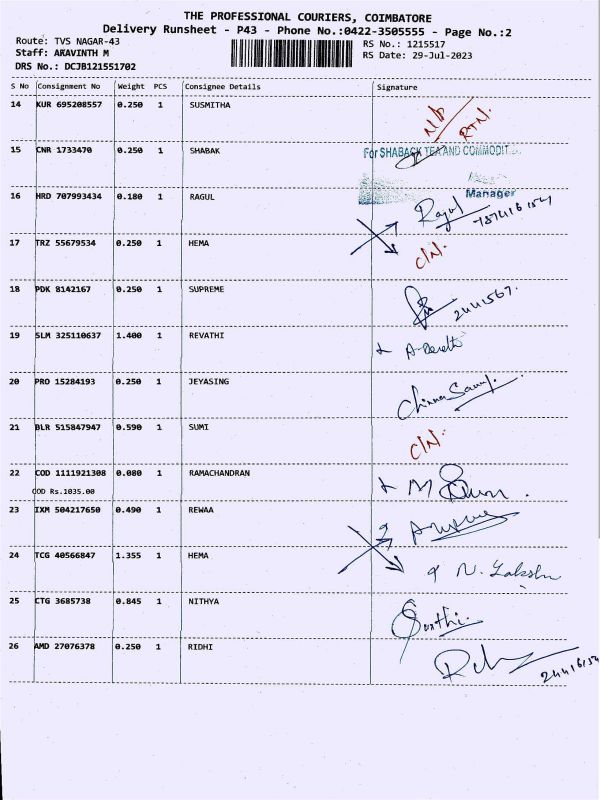 THE PROFESSIONAL COURIERS, COIMBATORE
Delivery Runsheet - P43 - Phone No.:0422-3505555 - Page No.:2
Route: TVS NAGAR-43
RS No.: 1215517
Staff: ARAVINTH M
RS Date: 29-Jul-2023
DRS No.: DCJB121551702
S No Consignment No Weight PCS Consignee Details Signature
14 KUR 695208557 0.250 1 SUSMITHA
N/D RTN.
15 CNR 1733470 0.250 1 SHABAK
For SHABACK TEA AND COMMODIT
Manager
16 HRD 707993434 0.180 1 RAGUL
Ragul
17 TRZ 55679534 0.250 1 HEMA C/N.
18 PDK 8142167 0.250 1 SUPREME
2441567.
19 SLM 325110637 1.400 1 REVATHI
20 PRO 15284193 0.250 1 JEYASING
Chinna Samy.
21 BLR 515847947 0.590 1 SUMI C/N.
22 COD 1111921308 0.080 1 RAMACHANDRAN
COD Rs.1035.00
23 IXM 504217650 0.490 1 REWAA
24 TCG 40566847 1.355 1 HEMA
25 CTG 3685738 0.845 1 NITHYA
26 AMD 27076378 0.250 1 RIDHI